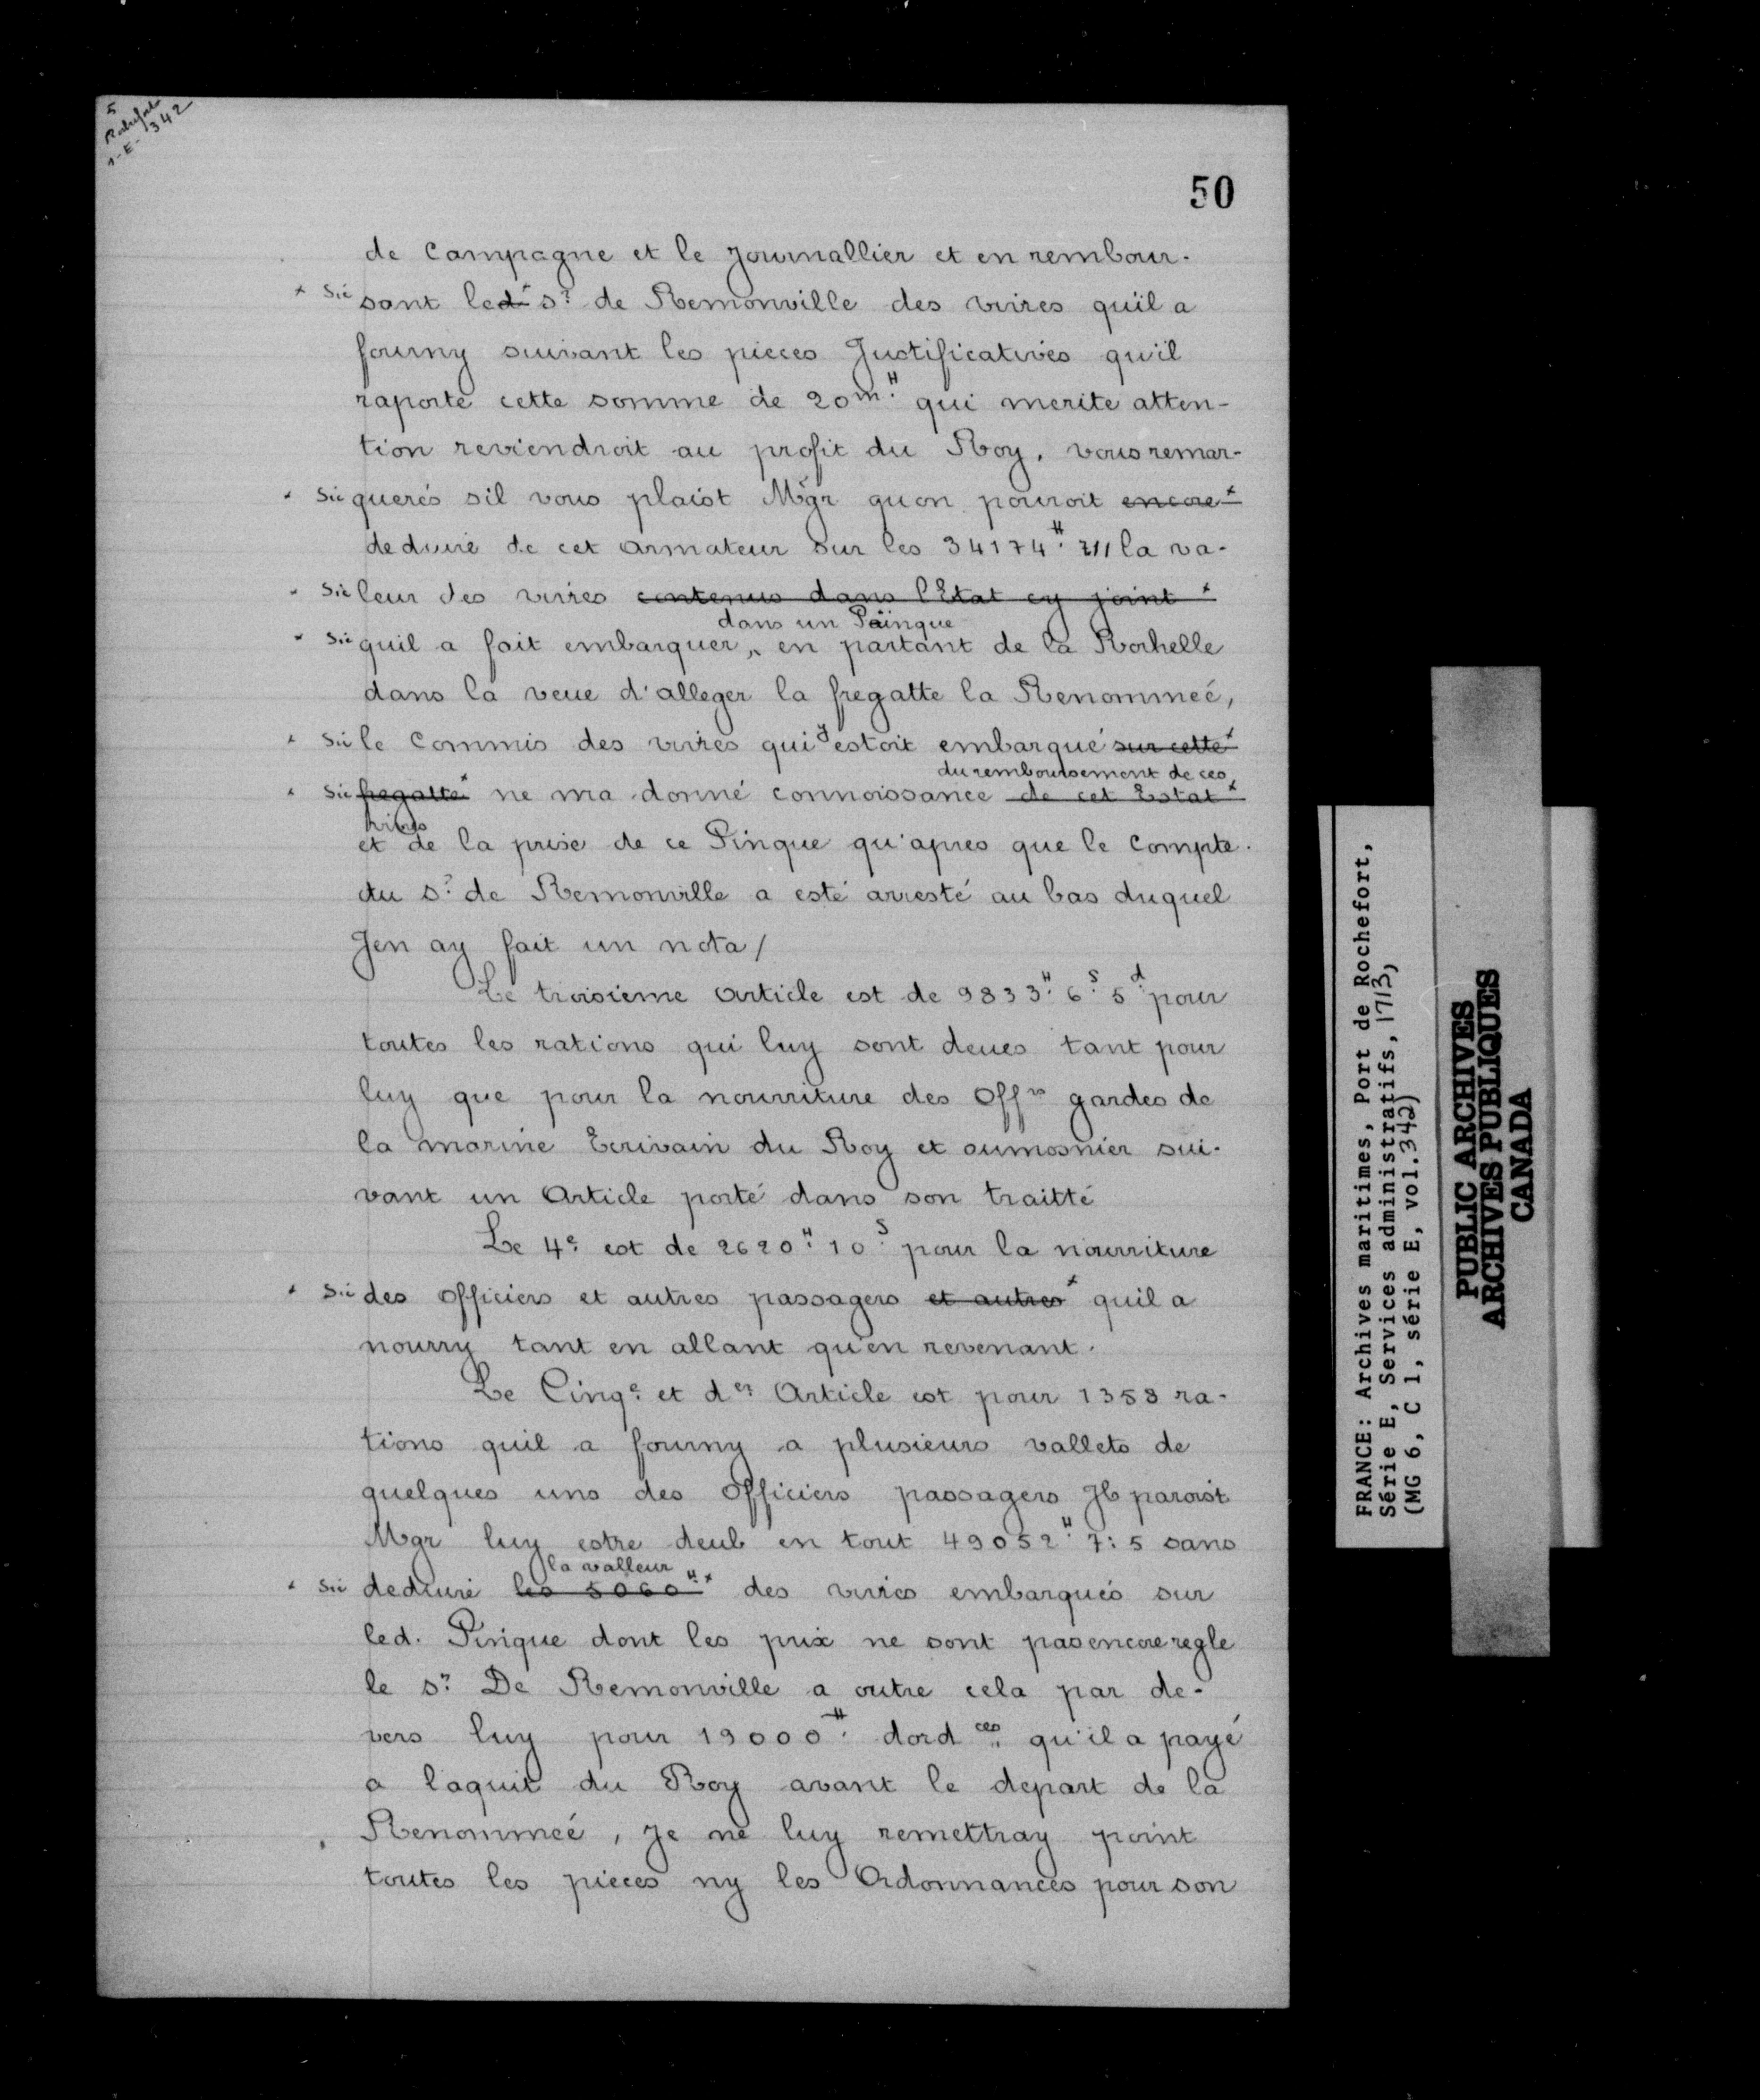 5
Rochefort
1-E-342
50
de Campagne et le Journallier et en rembour-
x sic sant led x sr de Remonville des vivres qu'il a
fourny suivant les pieces Justificatives qu'il
raporte cette somme de 20m.ᴴ qui merite atten-
tion reviendroit au profit du Roy. vous remar-
x sic querés sil vous plaist Mgr quon pouroit encore x
deduire de cet armateur sur les 34174ᴴ. la va-
x sic leur des vivres contenus dans l'Etat cy joint x
dans un Painque
x sic quil a fait embarquer, en partant de la Rochelle
dans la veue d'alleger la fregatte la Renommeé,
x sic le Commis des vivres qui y estoit embarqué sur cette x
du remboursement de ces
x sic fregatte x ne ma donné connoissance de cet Estat x
vivres
et de la prise de ce Pinque qu'apres que le Compte
du sr de Remonville a esté arresté au bas duquel
Jen ay fait un nota /
Le troisieme article est de 9833ᴴ. 6s. 5d. pour
toutes les rations qui luy sont deues tant pour
luy que pour la nourriture des Offrs gardes de
la marine Ecrivain du Roy et aumosnier sui-
vant un Article porté dans son traitté
Le 4e est de 2620ᴴ. 10s. pour la nourriture
x sic des officiers et autres passagers et autres x quil a
nourry tant en allant qu'en revenant.
Le Cinqe et der Article est pour 1358 ra-
tions quil a fourny a plusieurs vallets de
quelques uns des Officiers passagers Il paroist
Mgr luy estre deub en tout 49052ᴴ. 7: 5 sans
la valleur
x sic deduire les 5060ᴴ x des vivres embarqués sur
led. Pinque dont les prix ne sont pas encore regle
le sr De Remonville a outre cela par de-
vers luy pour 19000ᴴ. dordces qu'il a payé
a l'aquit du Roy avant le depart de la
Renommeé, Je ne luy remettray point
toutes les pieces ny les Ordonnances pour son
FRANCE: Archives maritimes, Port de Rochefort,
Série E, Services administratifs, 1713,
(MG 6, C 1, série E, vol. 342)
PUBLIC ARCHIVES
ARCHIVES PUBLIQUES
CANADA